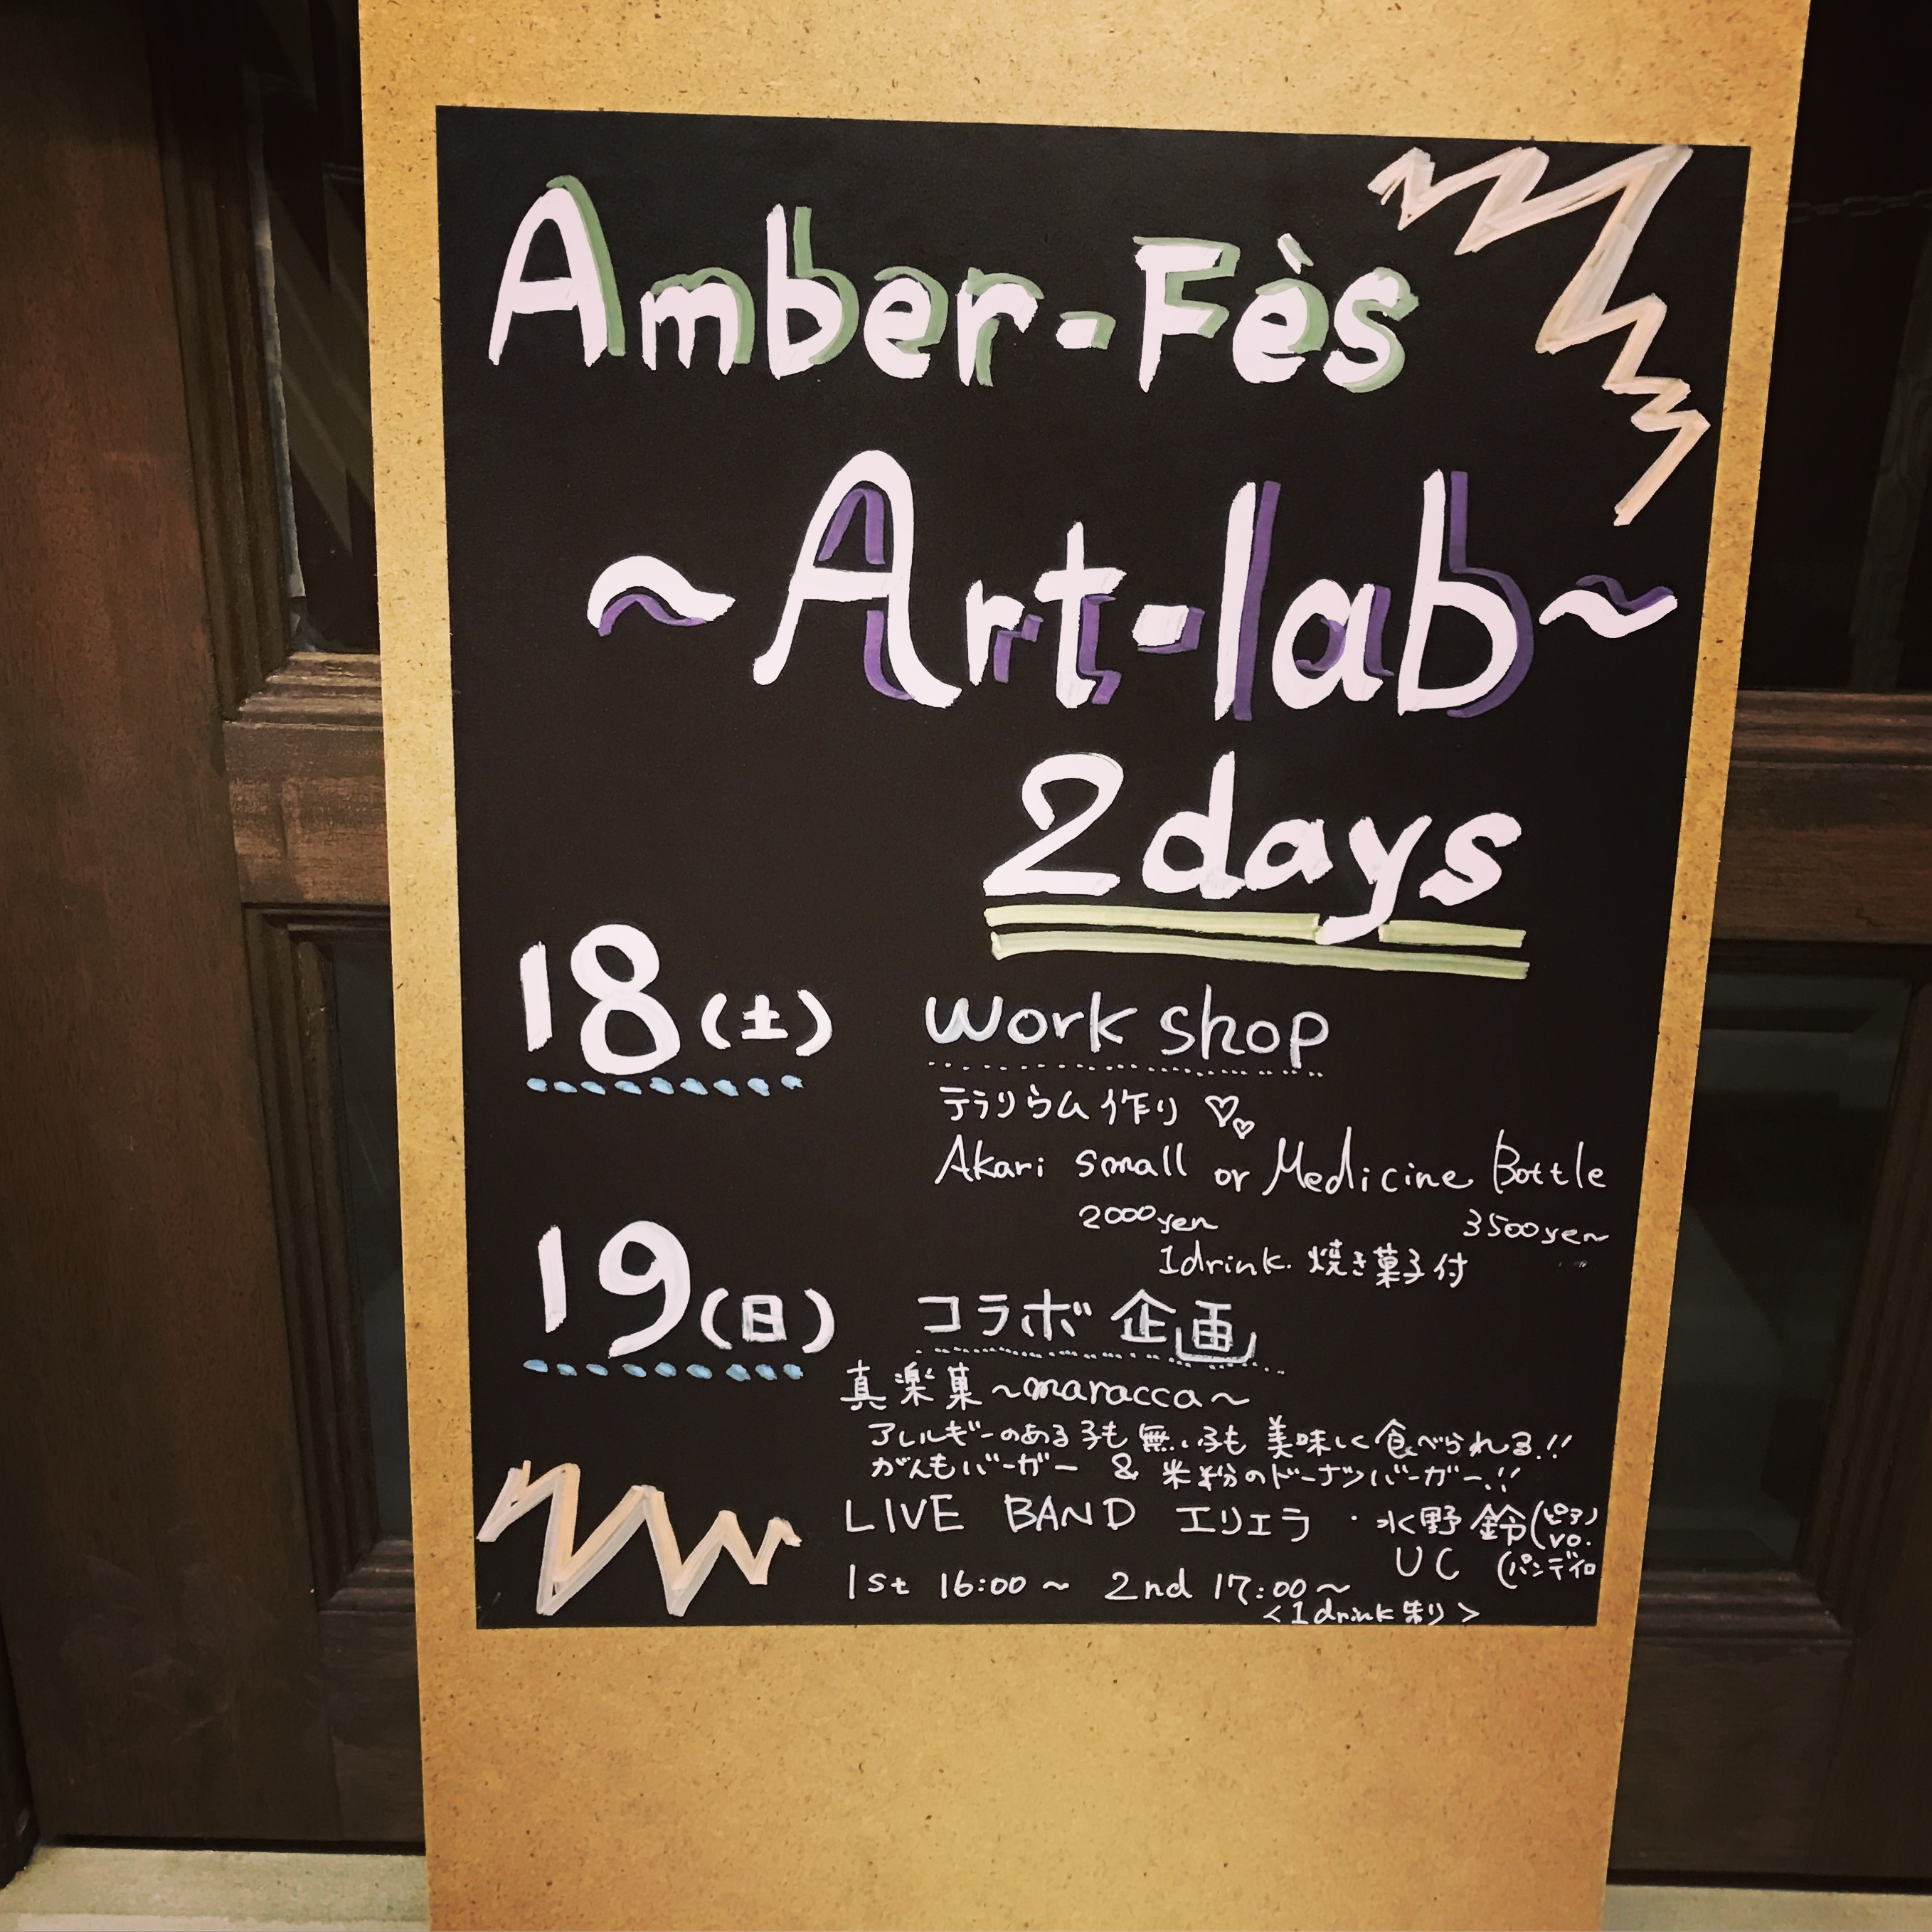 Amber-Fès
~Art-lab~
2days
18(土) work shop
テラリウム作り ♡♡
Akari small or Medicine Bottle
2000yen 3500yen
1drink. 焼き菓子付
19(日) コラボ企画
真楽菓~maracca~
アレルギーのある子も無い子も美味しく食べられる!!
がんもバーガー & 米粉のドーナツバーガー!!
LIVE BAND エリェラ ・水野鈴(ピアノ vo.
UC (パンデイロ
1st 16:00~ 2nd 17:00~
<1drink制>